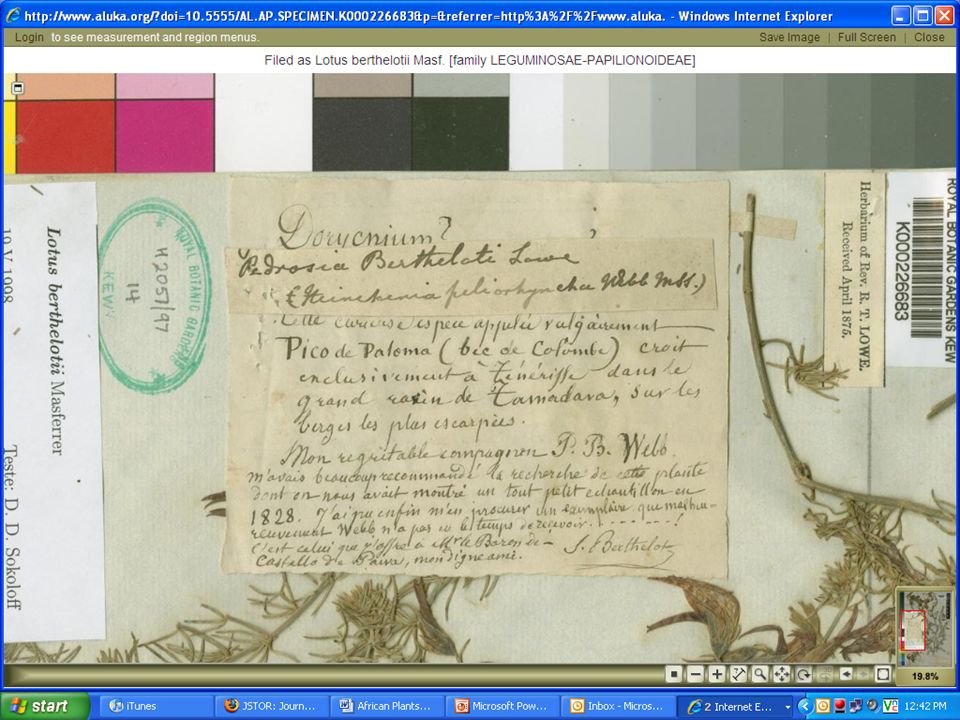 http://www.aluka.org/?doi=10.5555/AL.AP.SPECIMEN.K000226683&p=&referrer=http%3A%2F%2Fwww.aluka. - Windows Internet Explorer
Login to see measurement and region menus.
Save Image | Full Screen | Close
Filed as Lotus berthelotii Masf. [family LEGUMINOSAE-PAPILIONOIDEAE]
Lotus berthelotii Masferrer
19.V.1998
Teste: D. D. Sokoloff
ROYAL BOTANIC GARDENS
H2057/97
14
KEW
Dorycnium?
?
Pedrosia Bertheloti Lowe
(Heinekenia peliorhyncha Webb mss.)
Cette curieuse espece appelée vulgairement
Pico de Paloma (bec de Colombe) croit
exclusivement à Ténériffe dans le
grand ravin de Tamadava, sur les
berges les plus escarpées.
Mon regrettable compagnon P. B. Webb
m'avais beaucoup recommandé la recherche de cette plante
dont on nous avait montré un tout petit echantillon en
1828. J'ai pu enfin m'en procurer un exemplaire que malheu-
reusement Webb n'a pas eu le temps de recevoir.......!
C'est celui que j'offre à Mr le Baron de
Castello de Paiva, mon digne ami.
S. Berthelot
Herbarium of Rev. R. T. LOWE.
Received April 1875.
ROYAL BOTANIC GARDENS KEW
K000226683
19.8%
start
iTunes
JSTOR: Journ...
African Plants...
Microsoft Pow...
Inbox - Micros...
2 Internet E...
12:42 PM